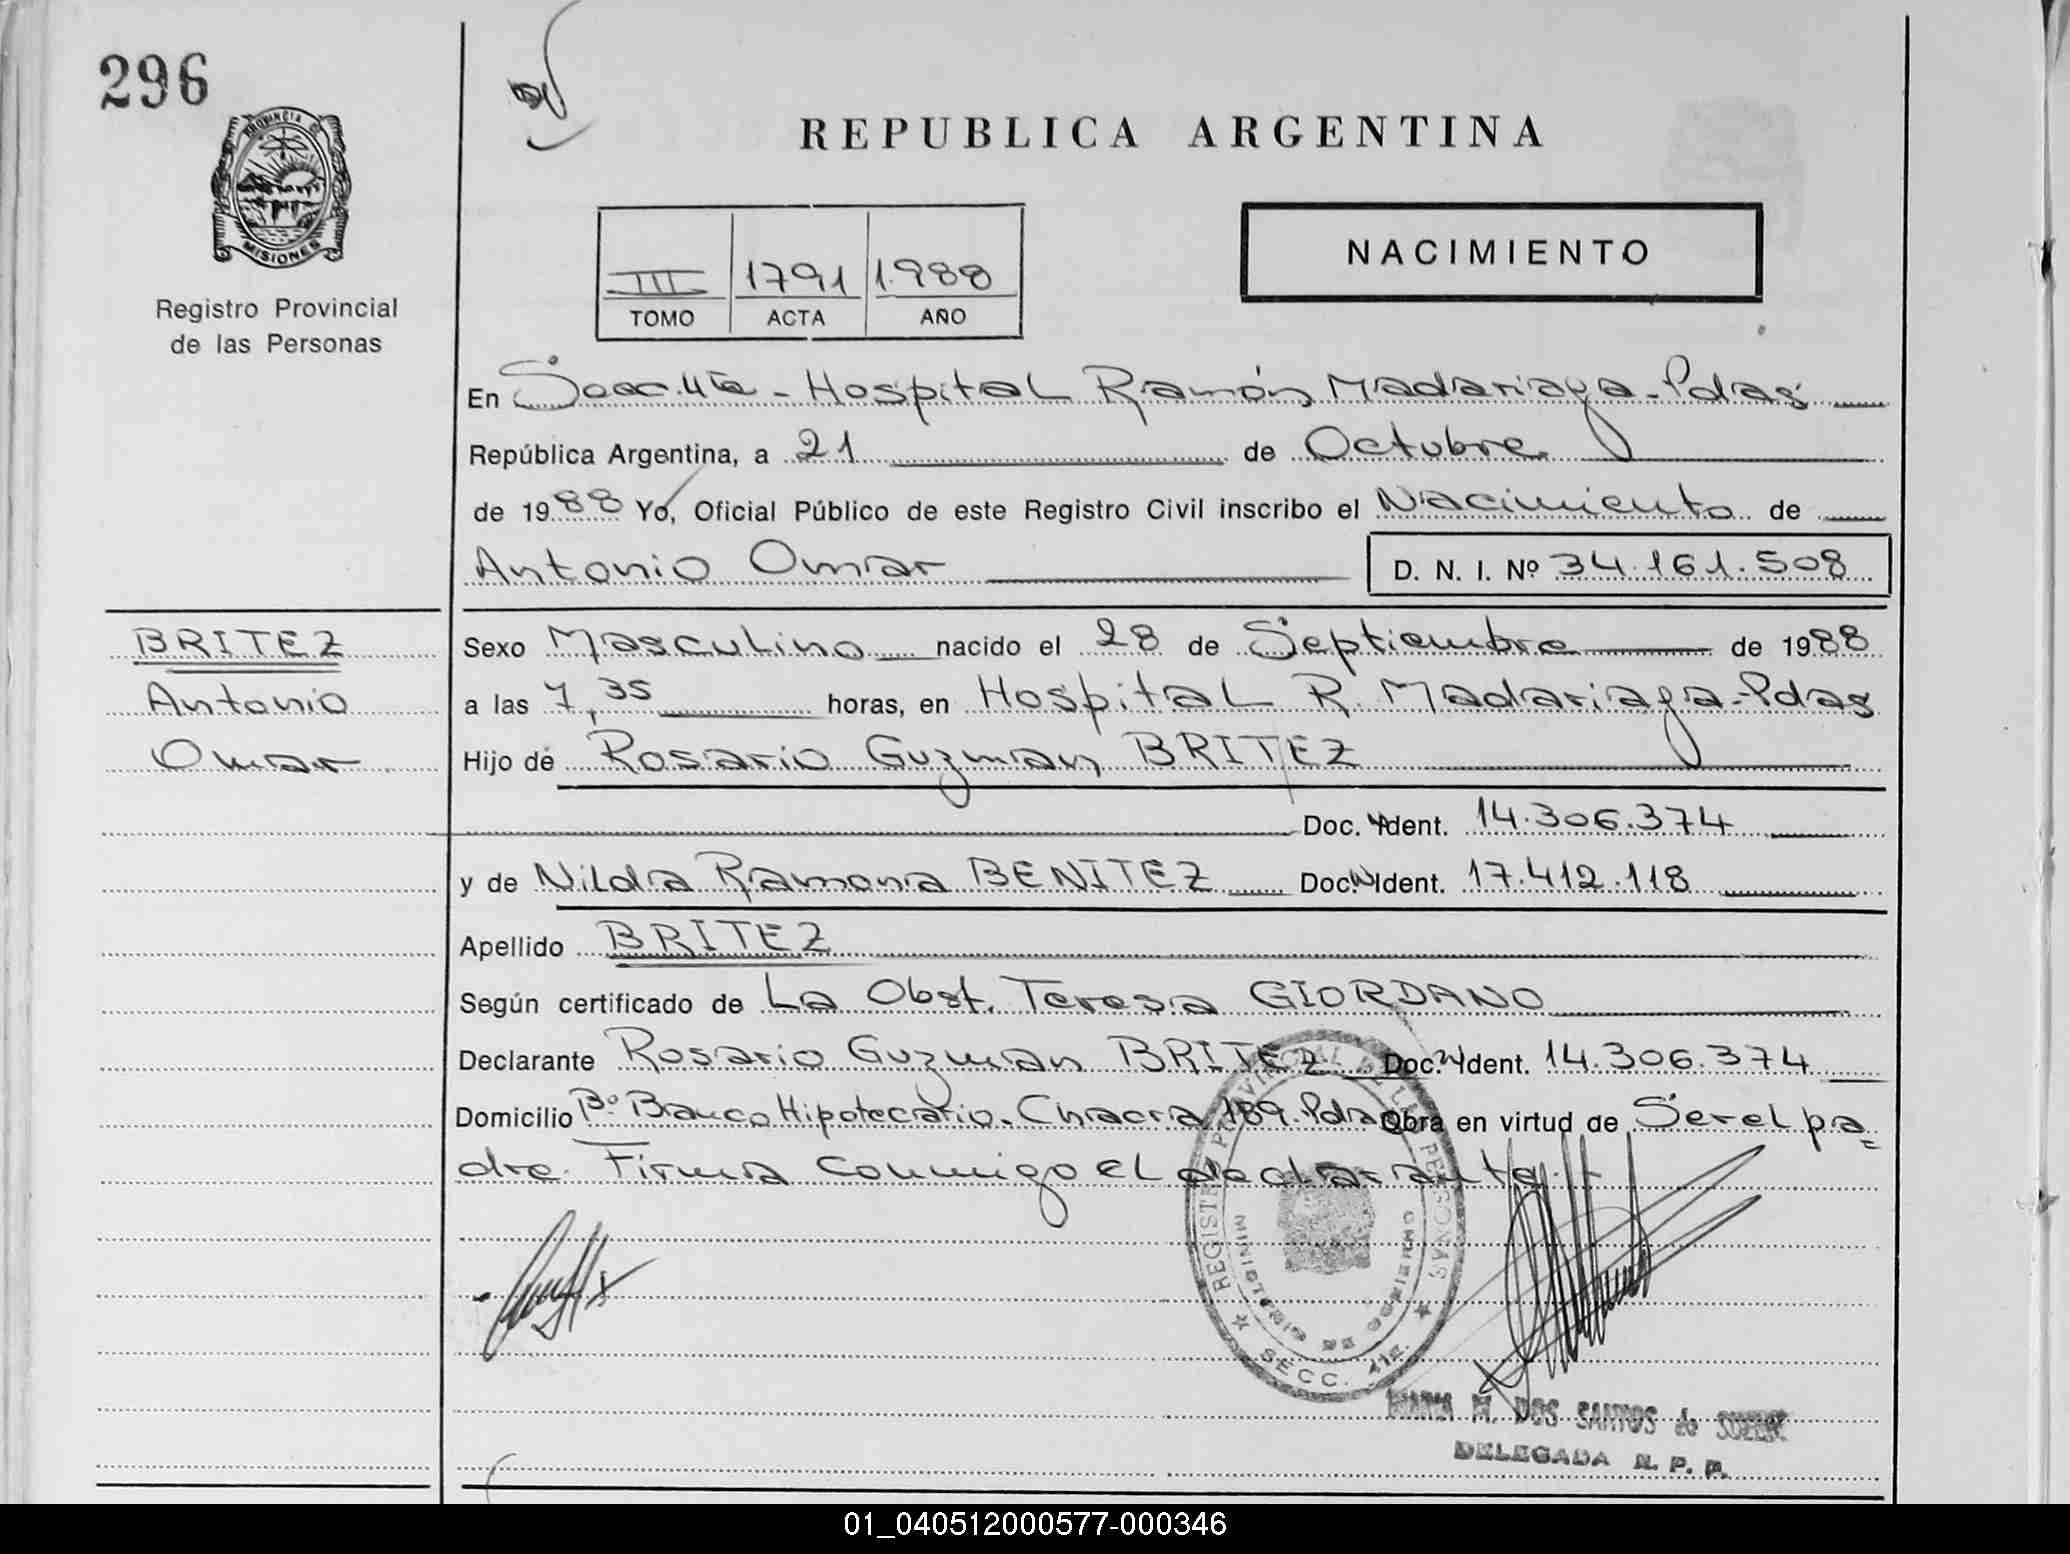 296
PROVINCIA DE
MISIONES
Registro Provincial
de las Personas
REPUBLICA ARGENTINA
III 1791 1.988
TOMO ACTA AÑO
NACIMIENTO
En Secc. 4ta - Hospital Ramón Madariaga - Pdas
República Argentina, a 21 de Octubre
de 1988 Yo, Oficial Público de este Registro Civil inscribo el Nacimiento de
Antonio Omar D. N. I. Nº 34.161.508
BRITEZ
Antonio
Omar
Sexo Masculino nacido el 28 de Septiembre de 1988
a las 7,35 horas, en Hospital R. Madariaga - Pdas
Hijo de Rosario Guzman BRITEZ
Doc. Ident. 14.306.374
y de Nilda Ramona BENITEZ Doc. Ident. 17.412.118
Apellido BRITEZ
Según certificado de La Obst. Teresa GIORDANO
Declarante Rosario Guzman BRITEZ Doc. Ident. 14.306.374
Domicilio Bº Banco Hipotecario. Chacra 189. Pdas Obra en virtud de Ser el pa=
dre. Firma conmigo el declarante.
REGISTRO PROVINCIAL DE LAS PERSONAS
MINISTERIO DE GOBIERNO
SECC. 4ta.
MARIA M. DOS SANTOS de
DELEGADA R. P. P.
01_040512000577-000346